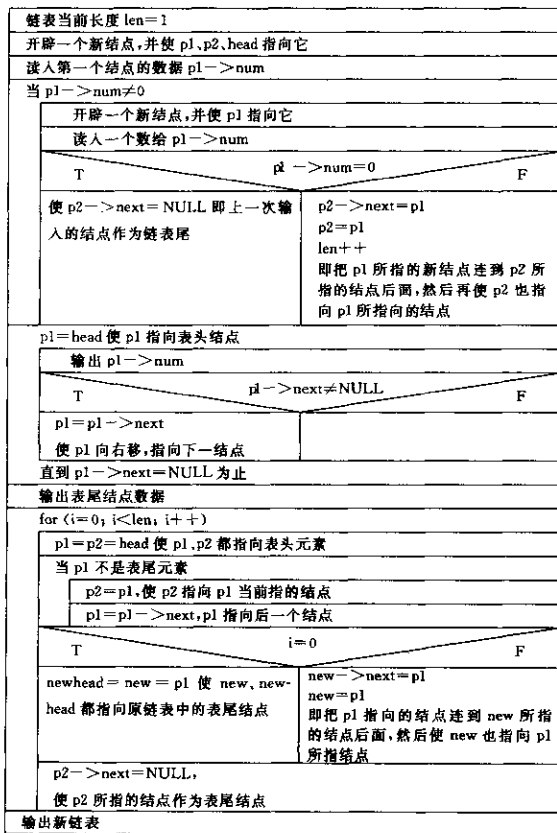 链表当前长度 len=1
开辟一个新结点,并使 p1、p2、head 指向它
读入第一个结点的数据 p1->num
当 p1->num≠0
开辟一个新结点,并使 p1 指向它
读入一个数给 p1->num
p1->num=0
T
F
使 p2->next=NULL 即上一次输
入的结点作为链表尾
p2->next=p1
p2=p1
len++
即把 p1 所指的新结点连到 p2 所
指的结点后面,然后再使 p2 也指
向 p1 所指向的结点
p1=head 使 p1 指向表头结点
输出 p1->num
p1->next≠NULL
T
F
p1=p1->next
使 p1 向右移,指向下一结点
直到 p1->next=NULL 为止
输出表尾结点数据
for (i=0; i<len; i++)
p1=p2=head 使 p1、p2 都指向表头元素
当 p1 不是表尾元素
p2=p1,使 p2 指向 p1 当前指的结点
p1=p1->next,p1 指向后一个结点
i=0
T
F
newhead=new=p1 使 new、new-
head 都指向原链表中的表尾结点
new->next=p1
new=p1
即把 p1 指向的结点连到 new 所指
的结点后面,然后使 new 也指向 p1
所指结点
p2->next=NULL,
使 p2 所指的结点作为表尾结点
输出新链表